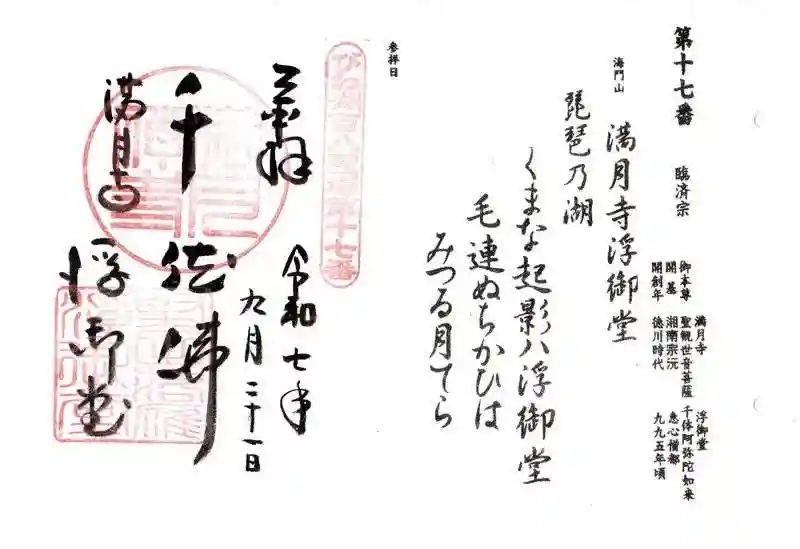 第十七番 臨済宗
満月寺 浮御堂
御本尊 聖観世音菩薩 千体阿弥陀如来
開基 湘南宗沅 恵心僧都
開創年 徳川時代 九九五年頃
海門山 満月寺浮御堂
琵琶乃湖
くまな起影八浮御堂
毛連ぬちかひは
みつる月てら
参拝日
びわ湖百八霊場第十七番
奉拝 令和七年
九月二十一日
千体佛
満月寺 浮御堂